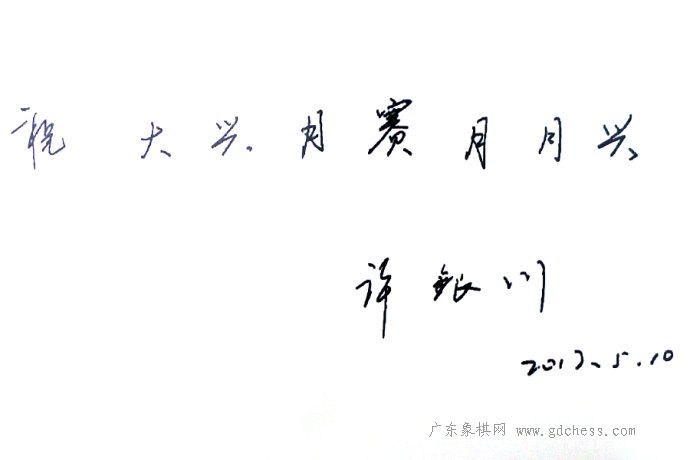 祝大兴月赛月月兴
许银川
2013.5.10
广东象棋网 www.gdchess.com